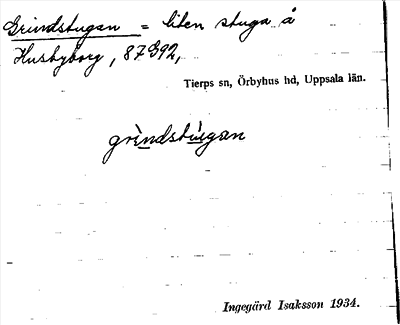 Grindstugan = liten stuga å
Husbyborg, 87392,
Tierps sn, Örbyhus hd, Uppsala län.
grìndstùgan
Ingegärd Isaksson 1934.